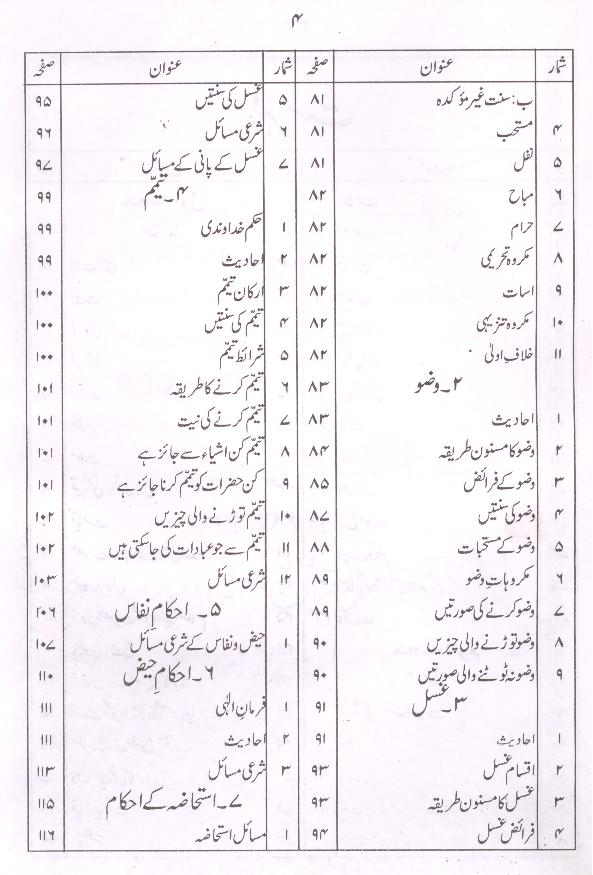 ۴
شمار عنوان صفحہ
ب: سنت غیر مؤکدہ ۸۱
۴ مستحب ۸۱
۵ نفل ۸۱
۶ مباح ۸۲
۷ حرام ۸۲
۸ مکروہ تحریمی ۸۲
۹ اسات ۸۲
۱۰ مکروہ تنزیہی ۸۲
۱۱ خلاف اولیٰ ۸۲
۲۔ وضو ۸۳
۱ احادیث ۸۳
۲ وضو کا مسنون طریقہ ۸۴
۳ وضو کے فرائض ۸۵
۴ وضو کی سنتیں ۸۷
۵ وضو کے مستحبات ۸۸
۶ مکروہاتِ وضو ۸۹
۷ وضو کرنے کی صورتیں ۸۹
۸ وضو توڑنے والی چیزیں ۹۰
۹ وضو نہ ٹوٹنے والی صورتیں ۹۰
۳۔ غسل ۹۱
۱ احادیث ۹۱
۲ اقسام غسل ۹۳
۳ غسل کا مسنون طریقہ ۹۳
۴ فرائض غسل ۹۴
شمار عنوان صفحہ
۵ غسل کی سنتیں ۹۵
۶ شرعی مسائل ۹۶
۷ غسل کے پانی کے مسائل ۹۷
۴۔ تیمّم ۹۹
۱ حکم خداوندی ۹۹
۲ احادیث ۹۹
۳ ارکان تیمّم ۱۰۰
۴ تیمّم کی سنتیں ۱۰۰
۵ شرائط تیمّم ۱۰۰
۶ تیمّم کرنے کا طریقہ ۱۰۱
۷ تیمّم کرنے کی نیت ۱۰۱
۸ تیمّم کن اشیاء سے جائز ہے ۱۰۱
۹ کن حضرات کو تیمّم کرنا جائز ہے ۱۰۱
۱۰ تیمّم توڑنے والی چیزیں ۱۰۲
۱۱ تیمّم سے جو عبادات کی جاسکتی ہیں ۱۰۲
۱۲ شرعی مسائل ۱۰۳
۵۔ احکامِ نفاس ۲۰۶
۱ حیض و نفاس کے شرعی مسائل ۱۰۷
۶۔ احکامِ حیض ۱۱۰
۱ فرمانِ الٰہی ۱۱۱
۲ احادیث ۱۱۱
۳ شرعی مسائل ۱۱۳
۷۔ استحاضہ کے احکام ۱۱۵
۱ مسائل استحاضہ ۱۱۶